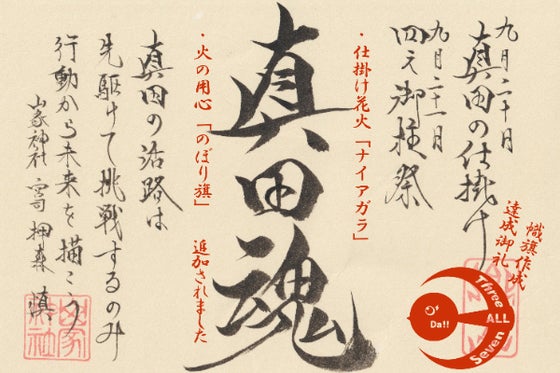 九月二十日
真田の仕掛け
九月二十一日
四え御柱祭
・仕掛け花火「ナイアガラ」
真田魂
・火の用心「のぼり旗」
追加されました
真田の活路は
先駆けて挑戦するのみ
行動から未来を描こう
山家神社 宮司 押森 慎
幟旗作成
達成御礼
Three
ALL
Seven
Da!!
山家神社